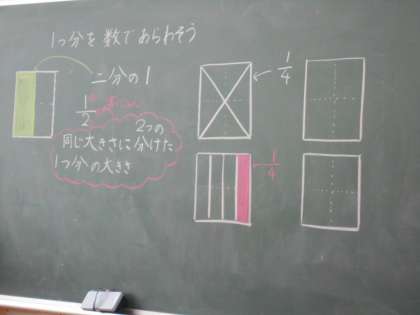 1つ分を数であらわそう
二分の1
1/2
2つの
同じ大きさに分けた
1つ分の大きさ
1/4
1/4